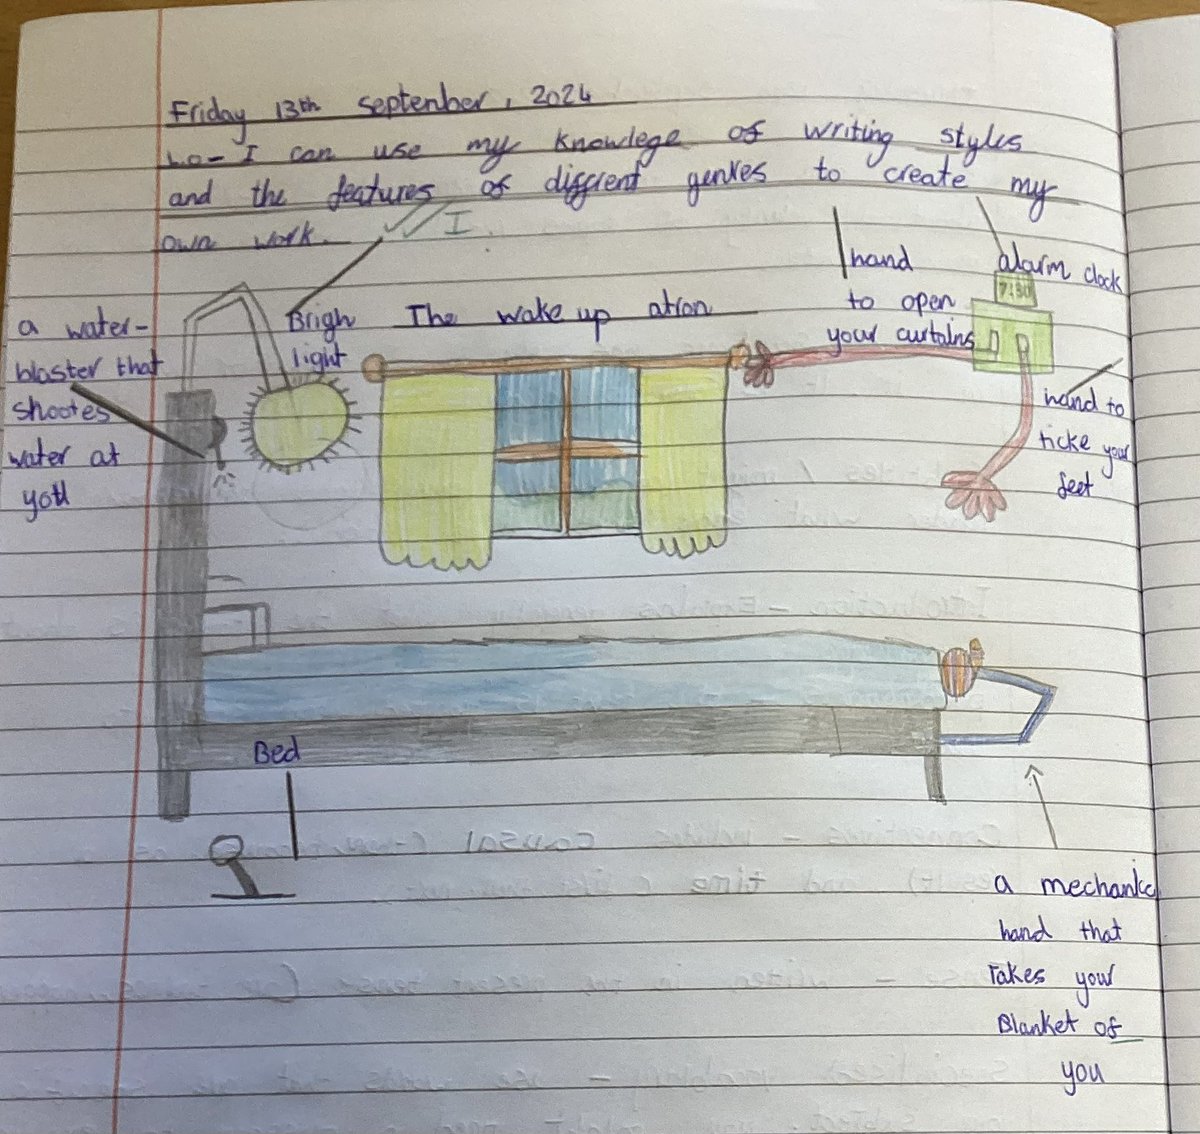 Friday 13th September, 2024
Lo- I can use my knowlege of writing styles
and the features of diffrent genres to create my
own work.
I
a water-
blaster that
shootes
water at
you
Brigh
light
The wake up ation
hand
to open
your curtains
alarm clock
7:30
hand to
ticke your
feet
Bed
a mechanic
hand that
Takes your
Blanket of
you